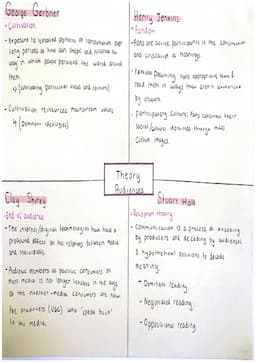 George Gerbner
- Cultivation
- Exposure to repeated patterns of representation over
long periods of time can shape and influence the
way in which people perceive the world around
them.
↳ (cultivating particular views and opinions)
- Cultivation reinforces mainstream values
↳ (Dominant ideologies)
Henry Jenkins
- Fandom
- Fans are active participators in the construction
and circulation of meanings.
- Textual poaching: Fans appropriate texts &
read them in ways that aren't authorised
by creators.
- participatory culture: Fans construct their
social/cultural identities through mass
culture images.
Theory
Audiences
Clay Shirky
- End of audience
- The internet/digital technologies have had a
profound effect on the relations between media
and individuals.
- Audience members as passive consumers of
mass media is no longer tenable in the age
of the internet - media consumers are now
the producers (UGC) who 'speak back'
to the media.
Stuart Hall
- Reception theory
- Communication is a process of encoding
by producers and decoding by audiences
3 hypothetical positions to decode
meaning:
- Dominant reading
- Negotiated reading
- Oppositional reading